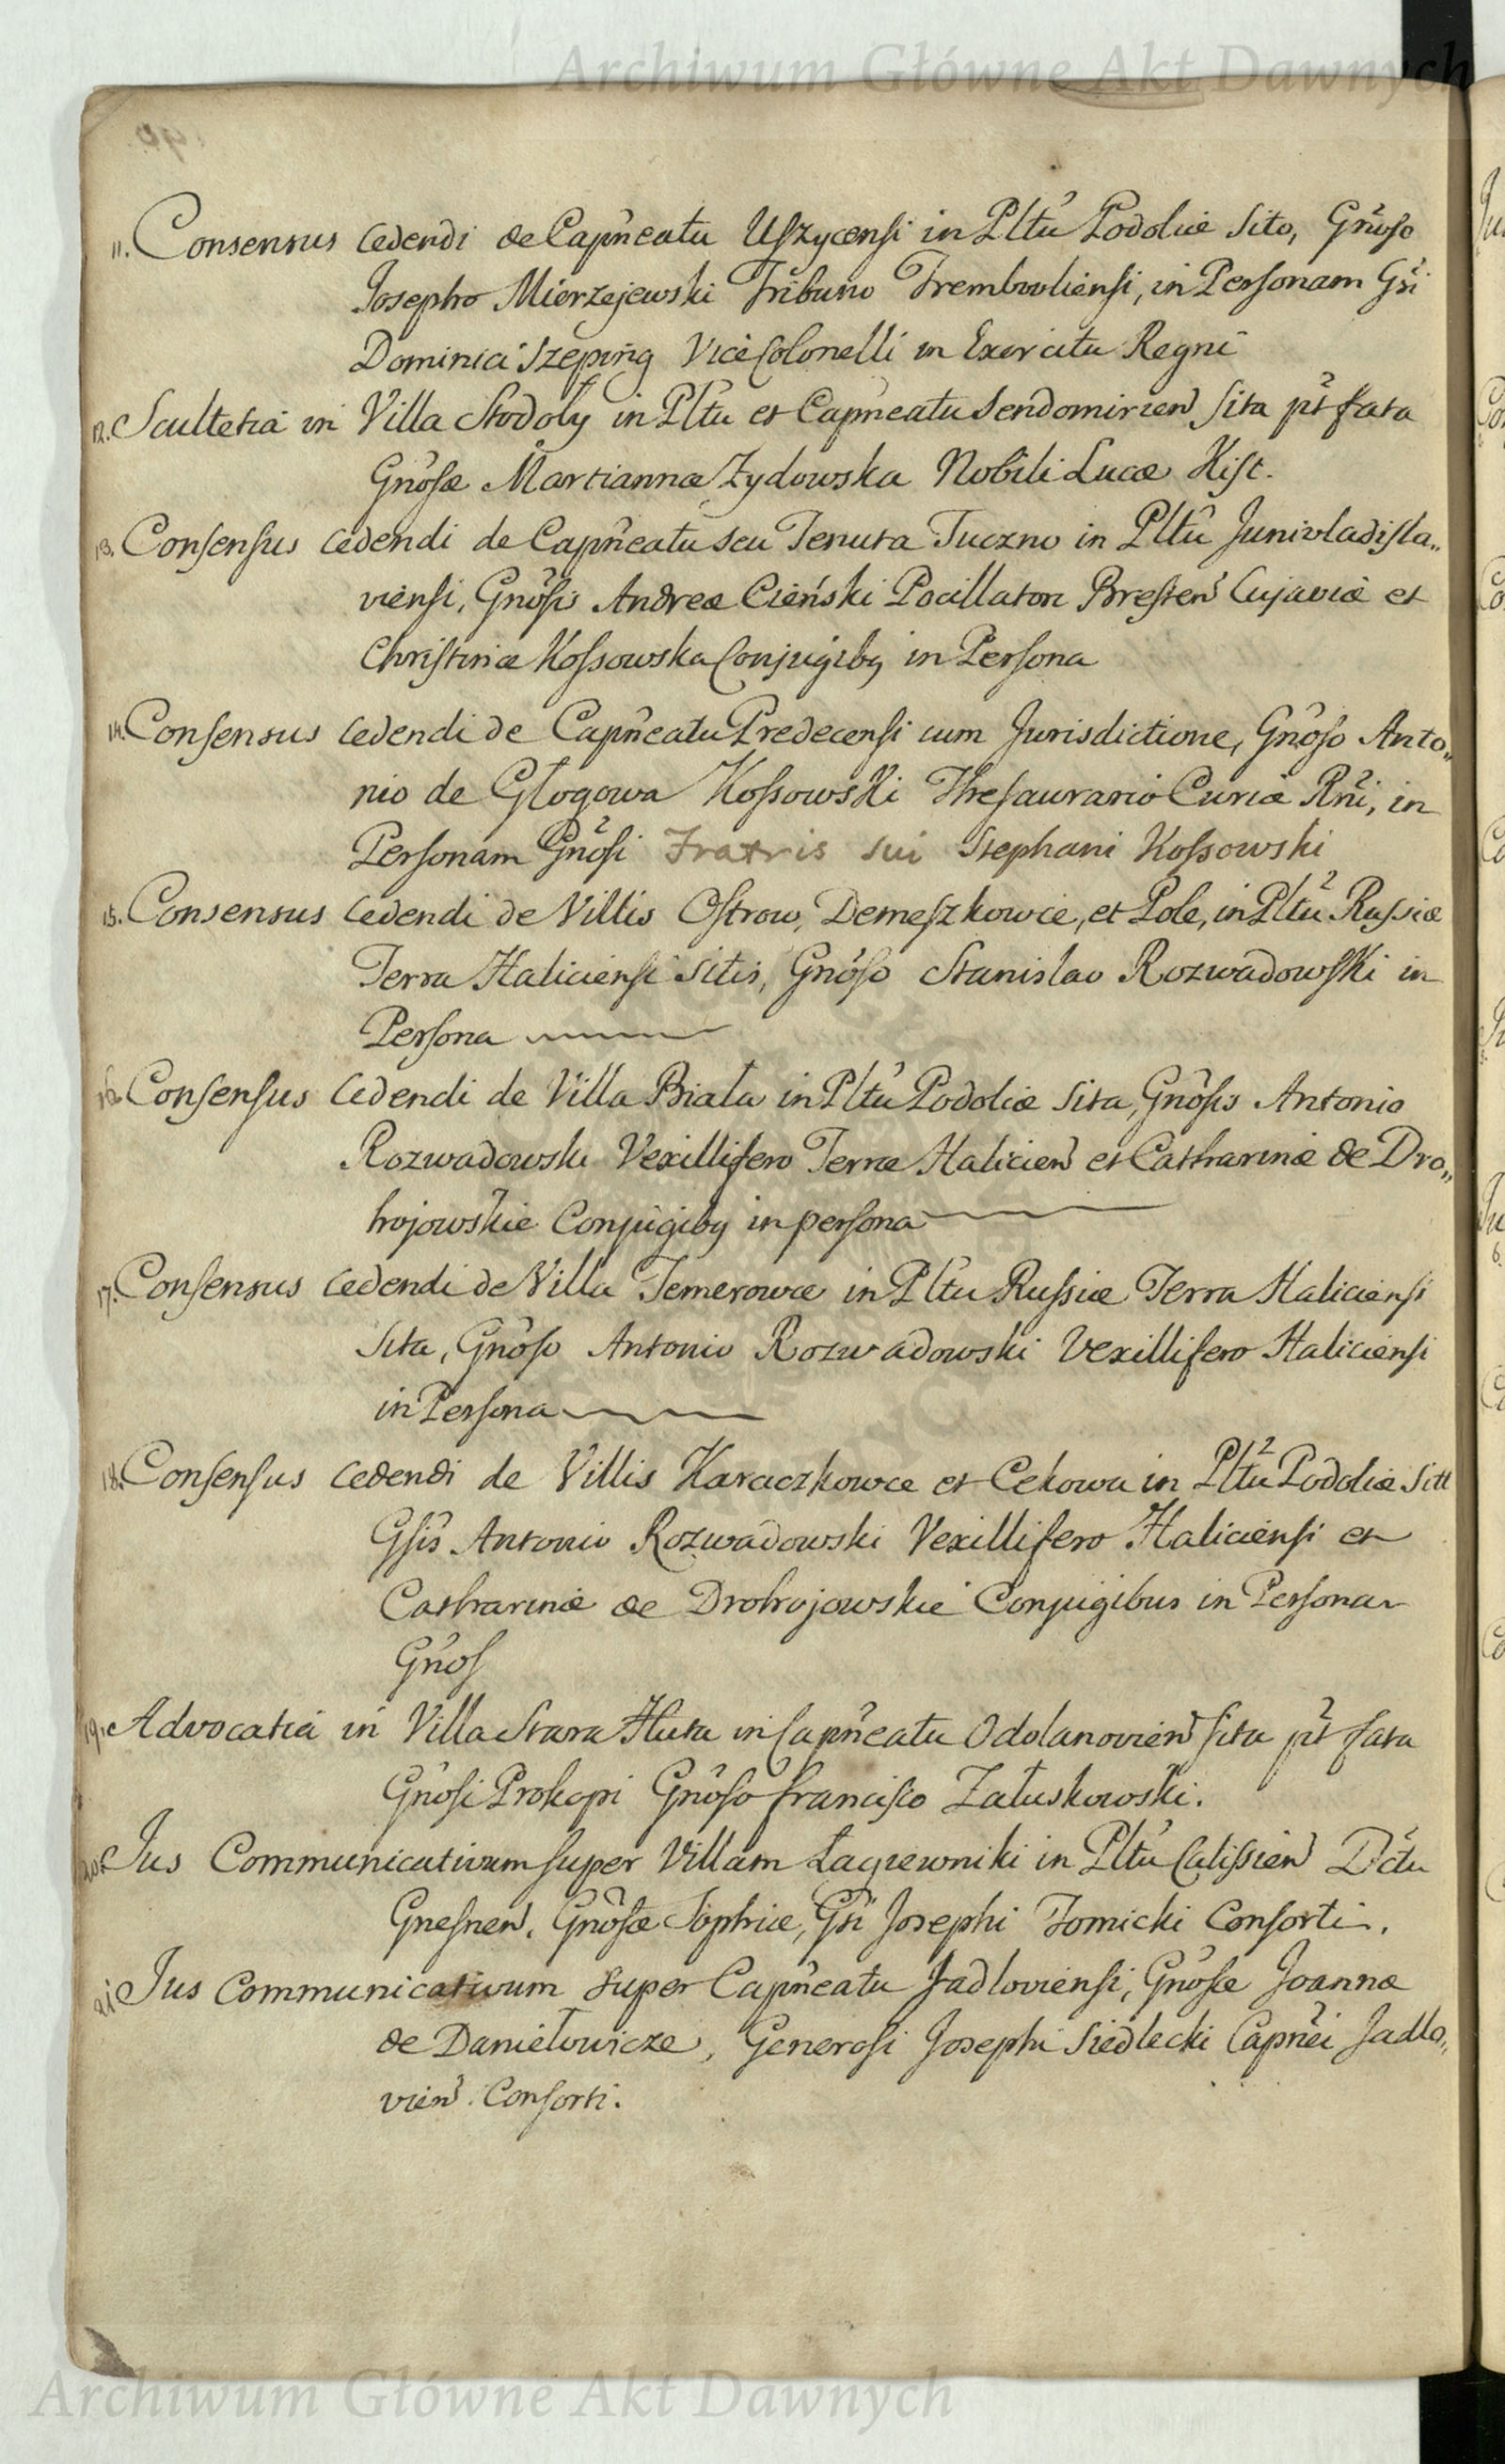 Archiwum Główne Akt Dawnych
11. Consensus cedendi de Capn̂eatu Uszycensi in Pltũ Podoliæ sito, Gnõso
Josepho Mierzejewski Tribuno Trembovliensi, in Personam Gsĩ
Dominici Szeping Vice Colonelli in Exercitu Regni
12. Scultetia in Villa Stodoły in Pltũ et Capn̂eatu Sendomirien̄ sita pt̃ fata
Gnõsæ Martiannæ Zydowska Nobili Lucæ Kist.
13. Consensus cedendi de Capn̂eatu seu Tenuta Tuczno in Pltũ Junivladisla„
viensi, Gnõsis Andreæ Cieński Pocillatori Bresten̄ Cujaviæ et
Christinæ Kossowska Conjugibg in Persona
14. Consensus cedendi de Capn̂eatu Predecensi cum Jurisdictione, Gnõso Anto„
nio de Głogowa Kossowski Thesaurario Curiæ Rnĩ, in
Personam Gnõsi Fratris sui Stephani Kossowski
15. Consensus cedendi de Villis Ostrow, Demeszkowce, et Pole, in Pltũ Russiæ
Terra Haliciensi sitis, Gnõso Stanislao Rozwadowski in
Persona
16. Consensus cedendi de Villa Biała in Pltũ Podoliæ sita, Gnõsis Antonio
Rozwadowski Vexillifero Terræ Halicien̄ et Catharinæ de Dro„
hojowskie Conjugibg in persona
17. Consensus cedendi de Villa Temerowce in Pltũ Russiæ Terra Haliciensi
sita, Gnõso Antonio Rozwadowski Vexillifero Haliciensi
in Persona
18. Consensus cedendi de Villis Karaczkowce et Cekowa in Pltũ Podoliæ sitt
Gsĩs Antonio Rozwadowski Vexillifero Haliciensi et
Catharinæ de Drohojowskie Conjugibus in Persona
Gnõs
19. Advocatia in Villa Stara Huta in Capn̂eatu Odolanovien̄ sita pt̃ fata
Gnõsi Prokopi Gnõso Francisco Załuskowski.
20. Jus Communicativum super Villam Łagiewniki in Pltũ Calissien̄ Dĉtu
Gnesnen̄, Gnõsæ Sophiæ, Gsĩ Josephi Tomicki Consorti.
21. Jus Communicativum super Capn̂eatu Jadloviensi, Gnõsæ Joannæ
de Daniełowicze, Generosi Josephi Siedlecki Capn̂ei Jadlo„
vien̄. Consorti.
Archiwum Główne Akt Dawnych